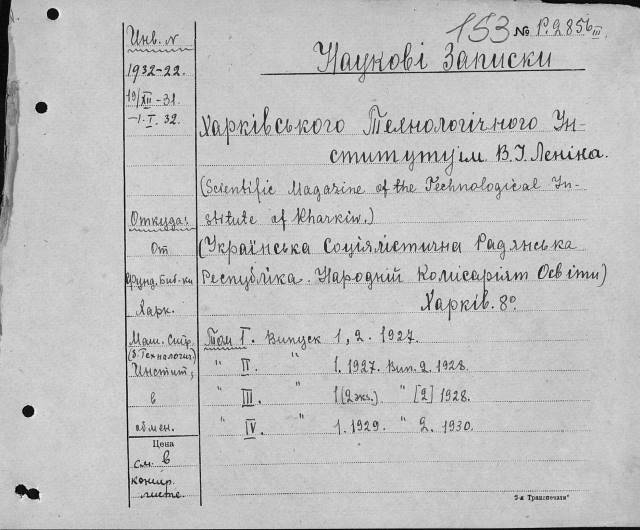 153 № P.2856 III
Инв. N
Наукові Записки
1932-22.
19/XII-31.
-1.I.32.
Харківського Технологічного Ін-
ституту ім. В.І. Леніна.
(Scientific Magazine of the Technological In-
stitute of Kharkiw.)
Откуда:
От
Фунд. Биб-ки
Харк.
(Українська Соціялістична Радянська
Республіка. Народній Комісаріят Освіти)
Харків. 8°
Маш. Стр.
(б. Технологич)
Инстит,
в
обмен.
Том I. Випуск 1, 2. 1927.
" II. " 1. 1927. Вип. 2. 1928.
" III. " 1 (2 экз.) " [2] 1928.
" IV. " 1. 1929. " 2. 1930.
Цена
см. в
листе.
2-я Транспечати"